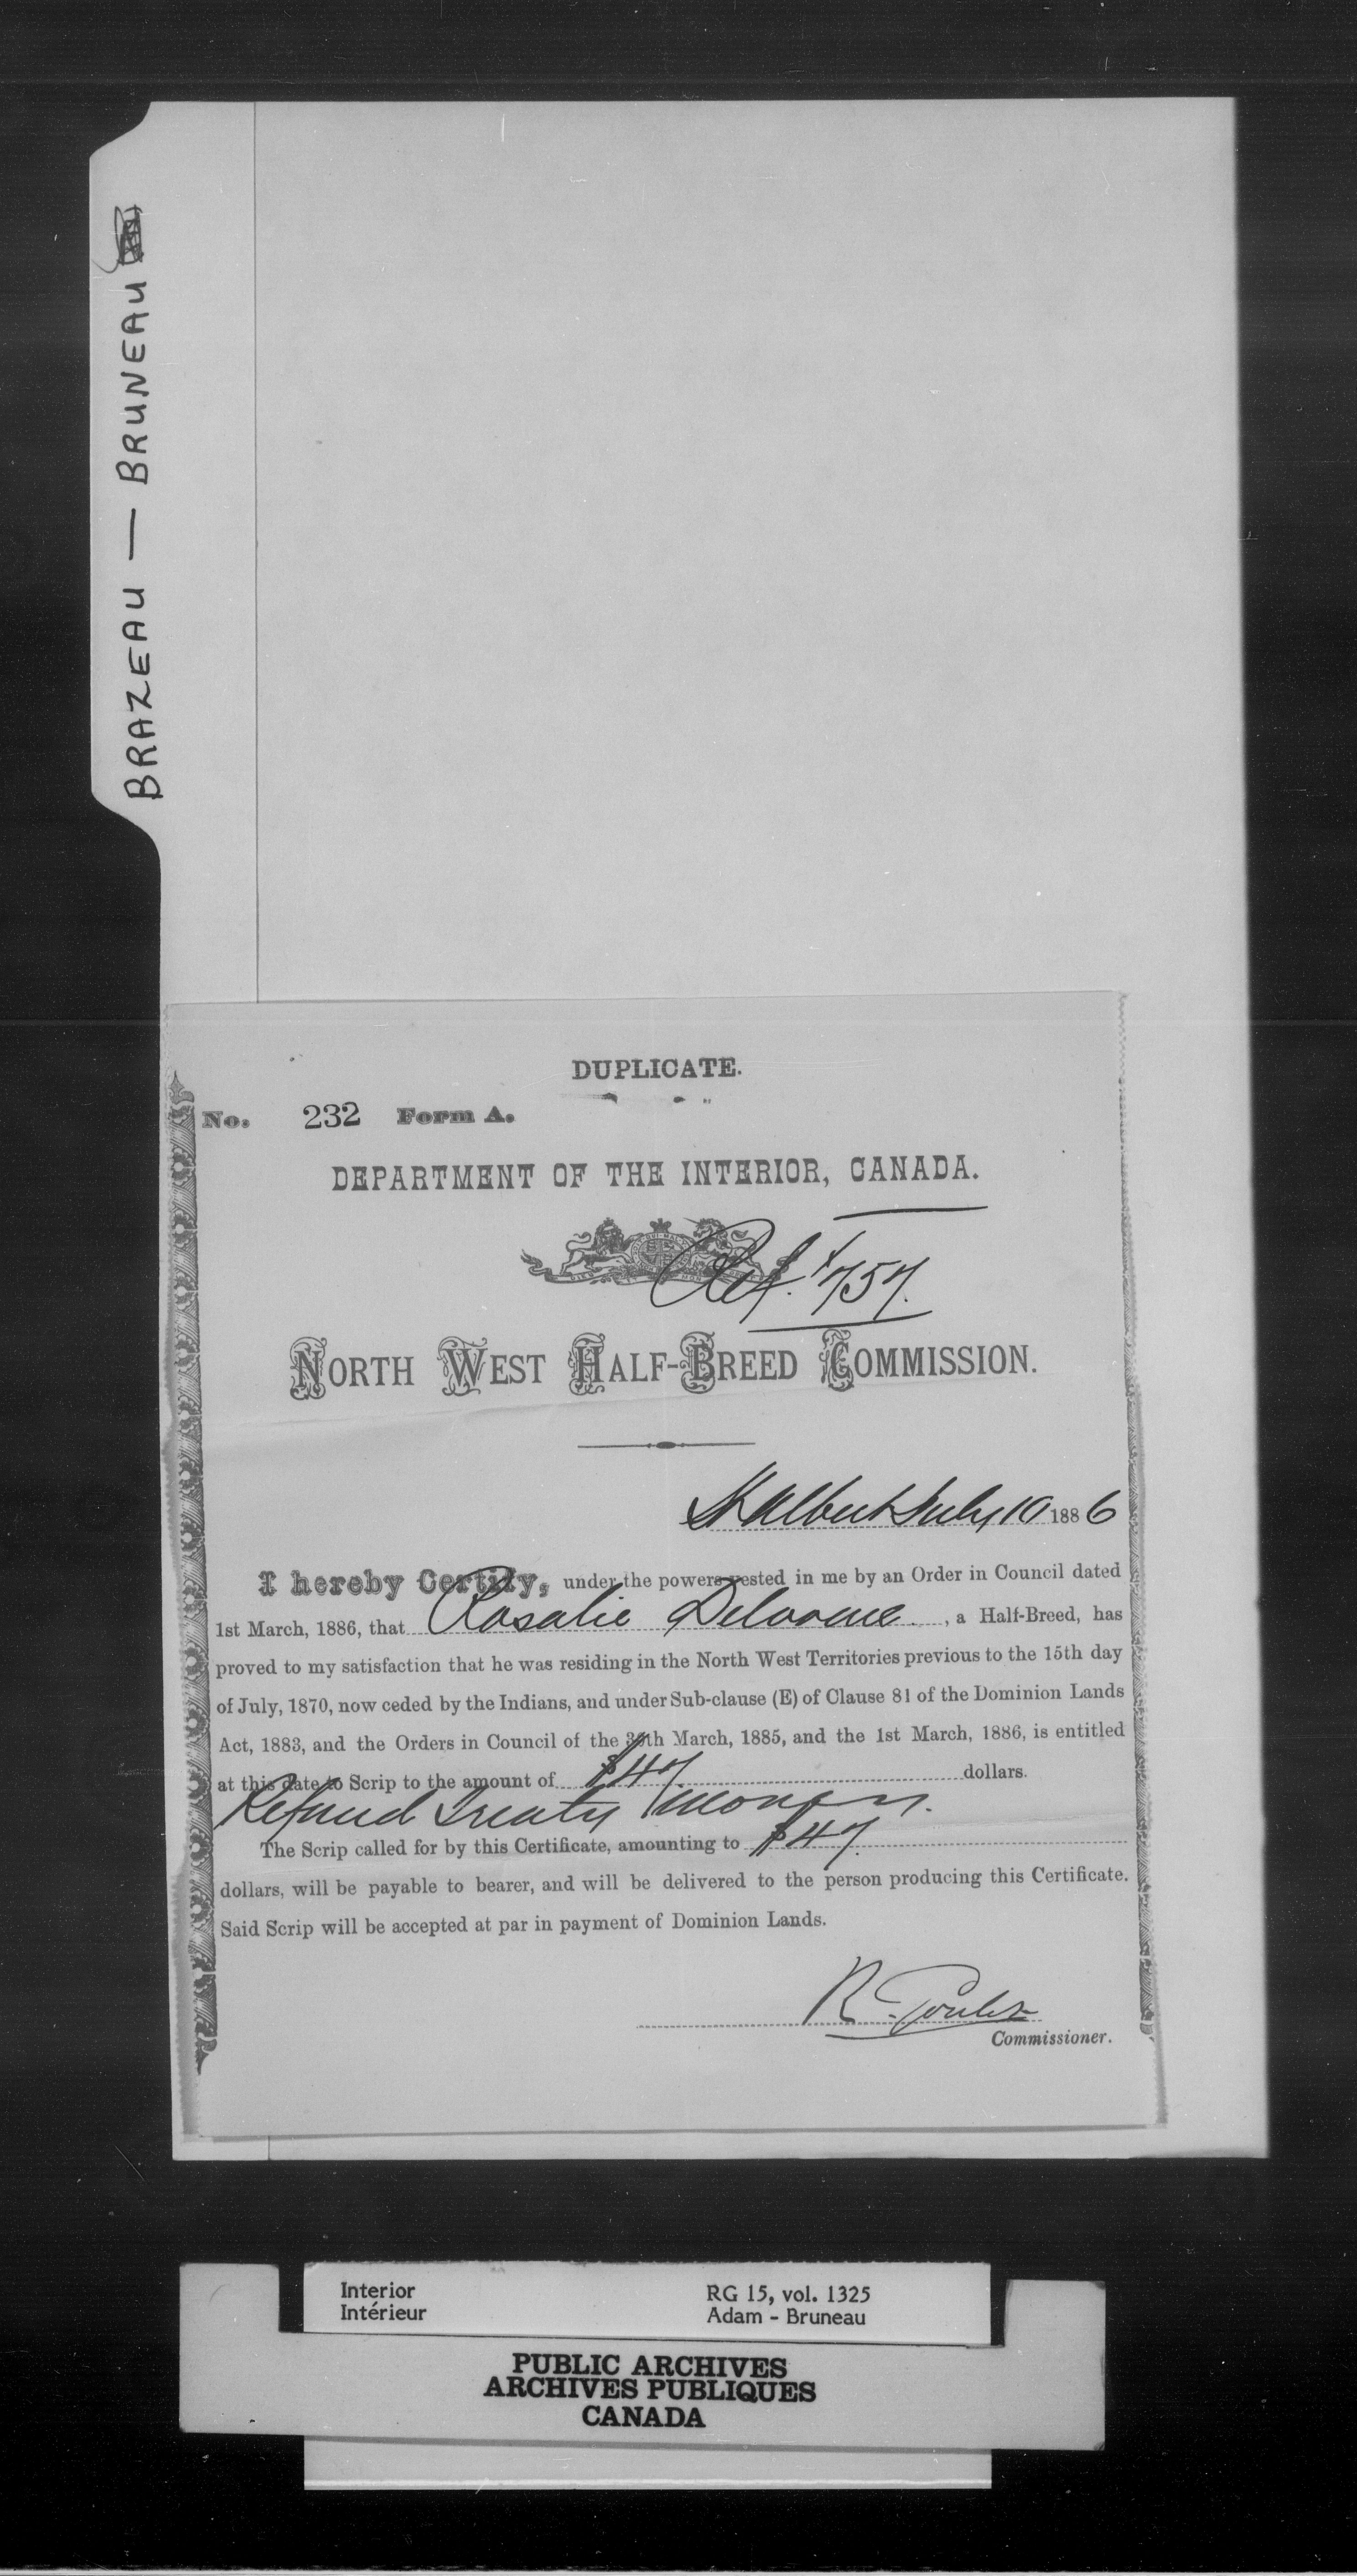 BRAZEAU — BRUNEAU
DUPLICATE.
No. 232 Form A.
DEPARTMENT OF THE INTERIOR, CANADA.
Ref. 757.
NORTH WEST HALF-BREED COMMISSION.
St Albert July 10 1886
I hereby Certify, under the powers vested in me by an Order in Council dated
1st March, 1886, that Rosalie Delorme, a Half-Breed, has
proved to my satisfaction that he was residing in the North West Territories previous to the 15th day
of July, 1870, now ceded by the Indians, and under Sub-clause (E) of Clause 81 of the Dominion Lands
Act, 1883, and the Orders in Council of the 30th March, 1885, and the 1st March, 1886, is entitled
at this date to Scrip to the amount of $47. dollars.
Refund Treaty money.
The Scrip called for by this Certificate, amounting to $47.
dollars, will be payable to bearer, and will be delivered to the person producing this Certificate.
Said Scrip will be accepted at par in payment of Dominion Lands.
R Goulet
Commissioner.
Interior RG 15, vol. 1325
Intérieur Adam - Bruneau
PUBLIC ARCHIVES
ARCHIVES PUBLIQUES
CANADA